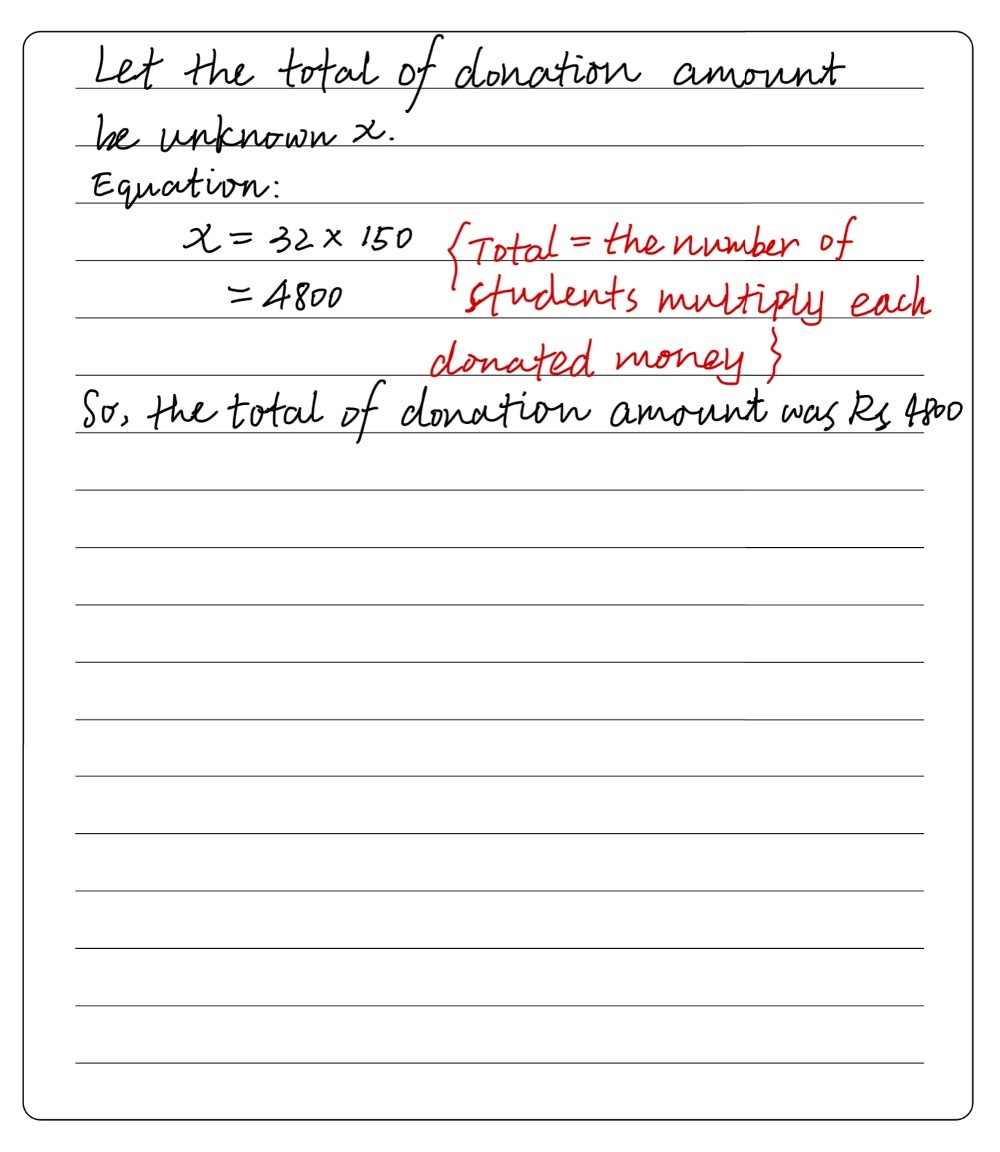 Let the total of donation amount
be unknown x.
Equation:
x = 32 × 150 {Total = the number of
= 4800 students multiply each
donated money }
So, the total of donation amount was Rs 4800